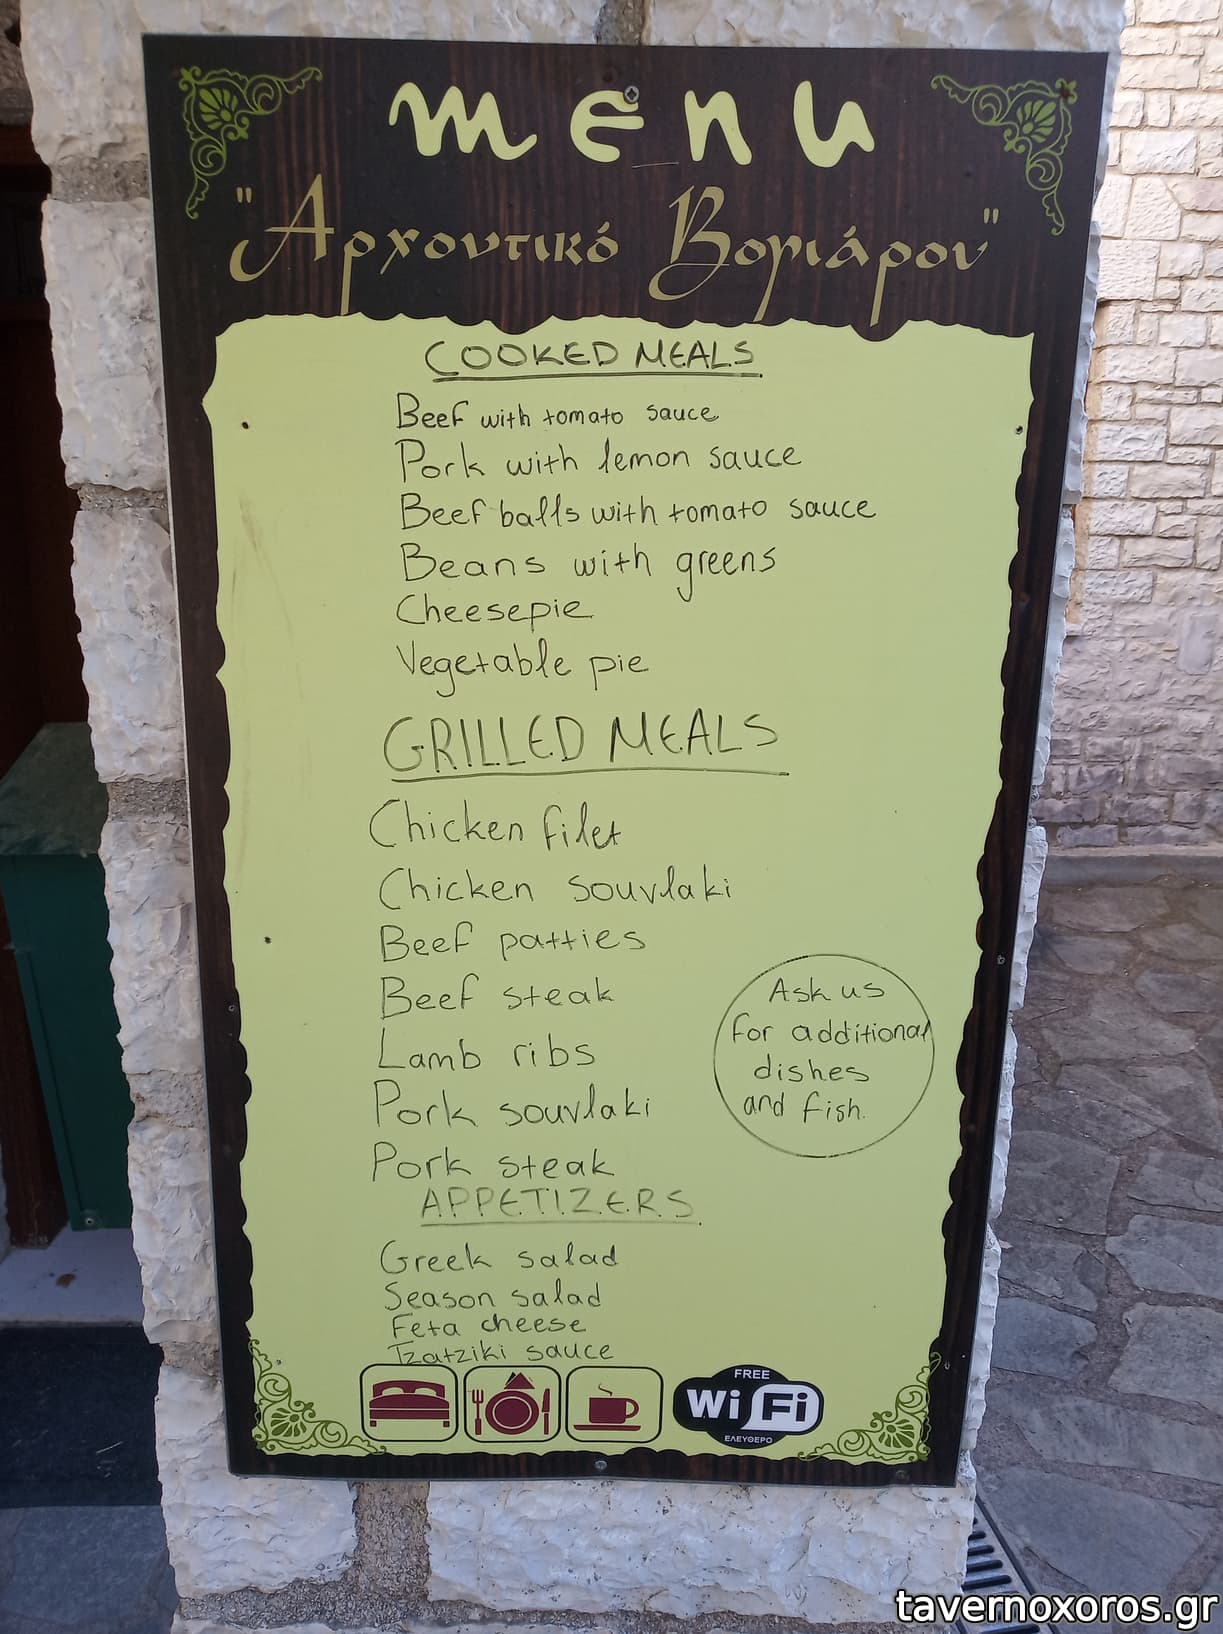 menu
"Αρχοντικό Βογιάρου"
COOKED MEALS
Beef with tomato sauce
Pork with lemon sauce
Beef balls with tomato sauce
Beans with greens
Cheesepie
Vegetable pie
GRILLED MEALS
Chicken filet
Chicken souvlaki
Beef patties
Beef steak
Lamb ribs
Pork souvlaki
Pork steak
Ask us
for additional
dishes
and fish.
APPETIZERS
Greek salad
Season salad
Feta cheese
Tzatziki sauce
FREE
Wi Fi
ΕΛΕΥΘΕΡΟ
tavernoxoros.gr